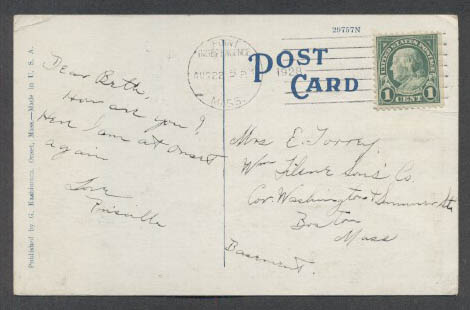 29757N
POINT INDEPENDENCE
AUG 22 5 P
1928
MASS.
POST CARD
UNITED STATES POSTAGE
1 CENT 1
Dear Beth,
How are you?
Here I am at Onset
again
Love
Priscilla
Mrs E. Torrey
Wm Filene Son's Co.
Cor Washington & Summer Sts
Boston
Mass
Basement.
Published by G. Onset, Mass.—Made in U. S. A.